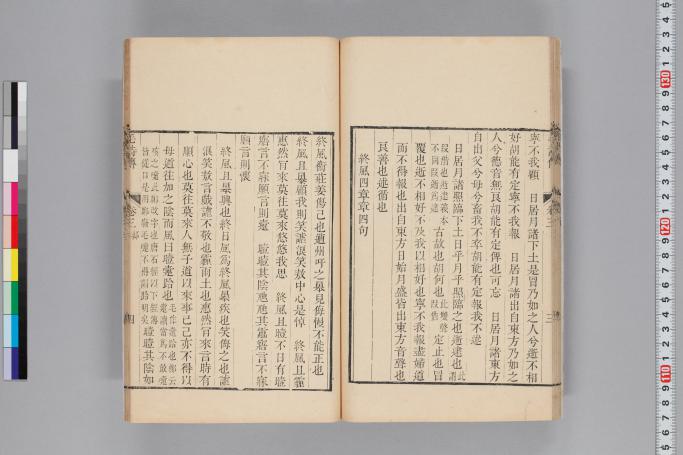 寧不我顧　日居月諸下土是冒乃如之人兮逝不相
好胡能有定寧不我報　日居月諸出自東方乃如之
人兮德音無良胡能有定俾也可忘　日居月諸東方
自出父兮母兮畜我不卒胡能有定報我不述
日居月諸照臨下土日乎月乎照臨之也逝逮也
古故也胡何也　定止也冒
覆也逝不相好不及我以相好也寧不我報盡婦道
而不得報也出自東方日始月盛皆出東方音聲也
良善也述循也
終風四章章四句
終風衞莊姜傷己也遭州吁之暴見侮慢不能正也
終風且暴顧我則笑謔浪笑敖中心是悼　終風且霾
惠然肯來莫往莫來悠悠我思　終風且曀不日有曀
寤言不寐願言則疌　曀曀其陰虺虺其靁寤言不寐
願言則懷
終風且暴興也終日風爲終風暴疾也笑侮之也謔
浪笑敖言戲謔不敬也霾雨土也惠然肯來言時有
順心也莫往莫來人無子道以來事己己亦不得以
母道往加之陰而風曰曀疌跲也
曀曀其陰如
卷三
三
四